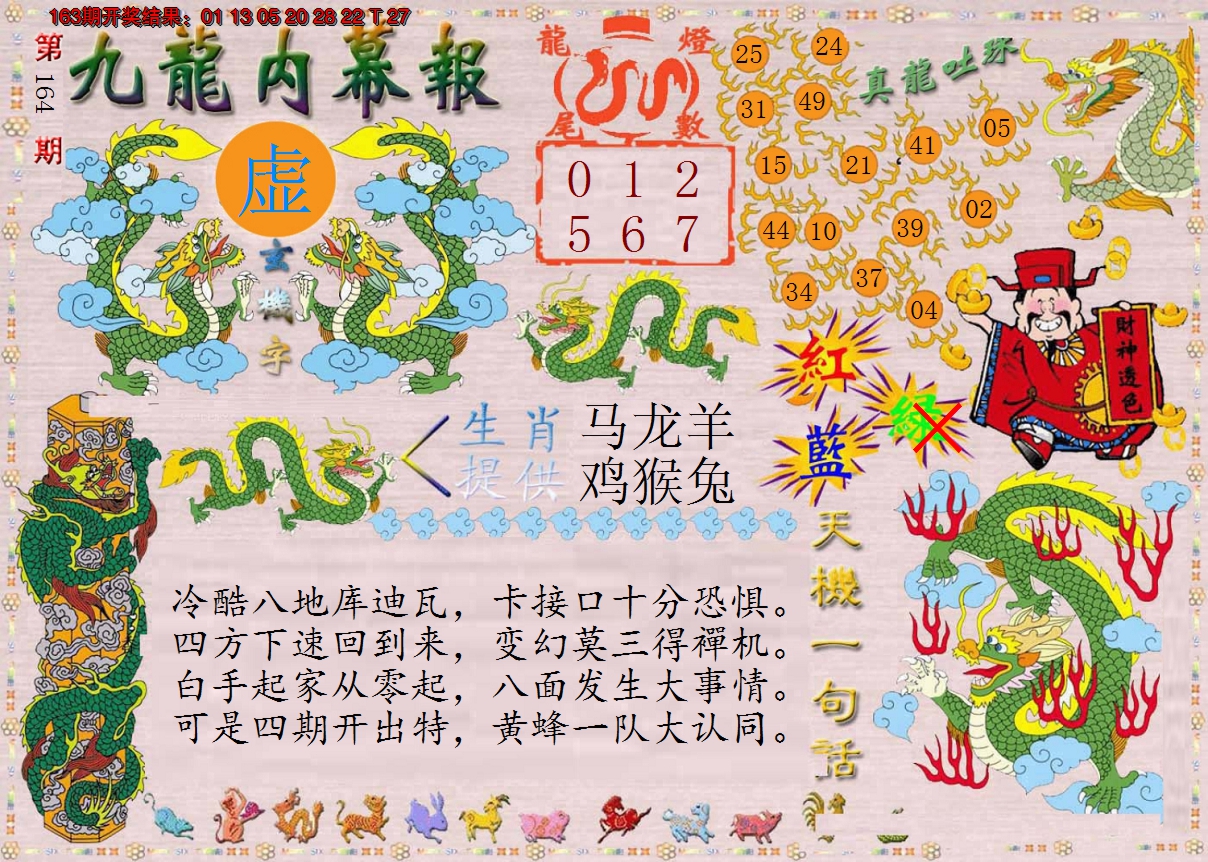 163期开奖结果：01 13 05 20 28 22 T 27
第164期
九龍内幕報
虚
玄機字
龍燈
尾數
0 1 2
5 6 7
真龍吐珠
25 24
31 49
15 21 41 05
44 10 39 02
34 37 04
財神透色
紅
綠
藍
生肖 马龙羊
提供 鸡猴兔
天機一句话
冷酷八地库迪瓦，卡接口十分恐惧。
四方下速回到来，变幻莫三得禪机。
白手起家从零起，八面发生大事情。
可是四期开出特，黄蜂一队大认同。